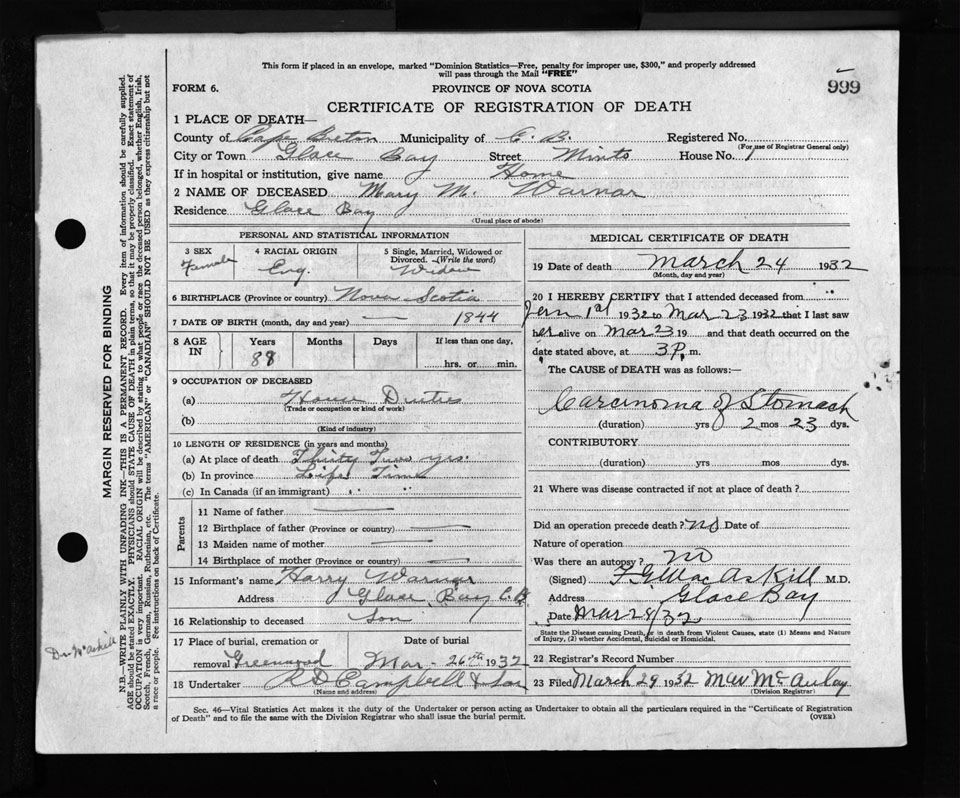 This form if placed in an envelope, marked "Dominion Statistics—Free, penalty for improper use, $300," and properly addressed
will pass through the Mail "FREE"
999
FORM 6.
PROVINCE OF NOVA SCOTIA
CERTIFICATE OF REGISTRATION OF DEATH
1 PLACE OF DEATH—
County of Cape Breton Municipality of C. B. Registered No.
(For use of Registrar General only)
City or Town Glace Bay Street Minto House No. 1
If in hospital or institution, give name Home
2 NAME OF DECEASED Mary M. Warnar
Residence Glace Bay
(Usual place of abode)
PERSONAL AND STATISTICAL INFORMATION
3 SEX
Female
4 RACIAL ORIGIN
Eng.
5 Single, Married, Widowed or
Divorced. (Write the word)
Widow
6 BIRTHPLACE (Province or country) Nova Scotia
7 DATE OF BIRTH (month, day and year) — 1844
8 AGE IN
Years
88
Months
Days
If less than one day,
hrs. or min.
9 OCCUPATION OF DECEASED
(a) House Duties
(Trade or occupation or kind of work)
(b)
(Kind of industry)
10 LENGTH OF RESIDENCE (in years and months)
(a) At place of death Thirty Two yrs.
(b) In province Life Time
(c) In Canada (if an immigrant) " "
Parents
11 Name of father —
12 Birthplace of father (Province or country) —
13 Maiden name of mother —
14 Birthplace of mother (Province or country) —
15 Informant's name Harry Warnar
Address Glace Bay C.B.
16 Relationship to deceased Son
17 Place of burial, cremation or
removal Greenwood
Date of burial
Mar- 26th 1932
18 Undertaker R D Campbell & Son
(Name and address)
MEDICAL CERTIFICATE OF DEATH
19 Date of death March 24 1932
(Month, day and year)
20 I HEREBY CERTIFY that I attended deceased from
1st 1932 to Mar 23 1932 that I last saw
her alive on Mar 23 19 and that death occurred on the
date stated above, at 3 P. m.
The CAUSE OF DEATH was as follows:—
Carcinoma of Stomach
(duration) yrs 2 mos 23 dys.
CONTRIBUTORY
(duration) yrs. mos. dys.
21 Where was disease contracted if not at place of death?
Did an operation precede death? no Date of
Nature of operation
Was there an autopsy? no
(Signed) F G MacAskill M.D.
Address Glace Bay
Date Mar 28/32
State the Disease causing Death, or in death from Violent Causes, state (1) Means and Nature
of Injury, (2) whether Accidental, Suicidal or Homicidal.
22 Registrar's Record Number
23 Filed March 29 1932 McAulay
(Division Registrar)
Sec. 46—Vital Statistics Act makes it the duty of the Undertaker or person acting as Undertaker to obtain all the particulars required in the "Certificate of Registration
of Death" and to file the same with the Division Registrar who shall issue the burial permit.
(OVER)
MARGIN RESERVED FOR BINDING
N.B.—WRITE PLAINLY WITH UNFADING INK—THIS IS A PERMANENT RECORD. Every item of information should be carefully supplied.
AGE should be stated EXACTLY. PHYSICIANS should STATE CAUSE OF DEATH in plain terms, so that it may be properly classified. Exact statement of
OCCUPATION is very important. RACIAL ORIGIN will be described by stating to what people or race the deceased person belonged, whether English, Irish,
Scotch, French, German, Russian, Ruthenian, etc. The terms "AMERICAN" or "CANADIAN" SHOULD NOT BE USED as they express citizenship but not
a race or people. Fee instructions on back of Certificate.
Dr McAskill